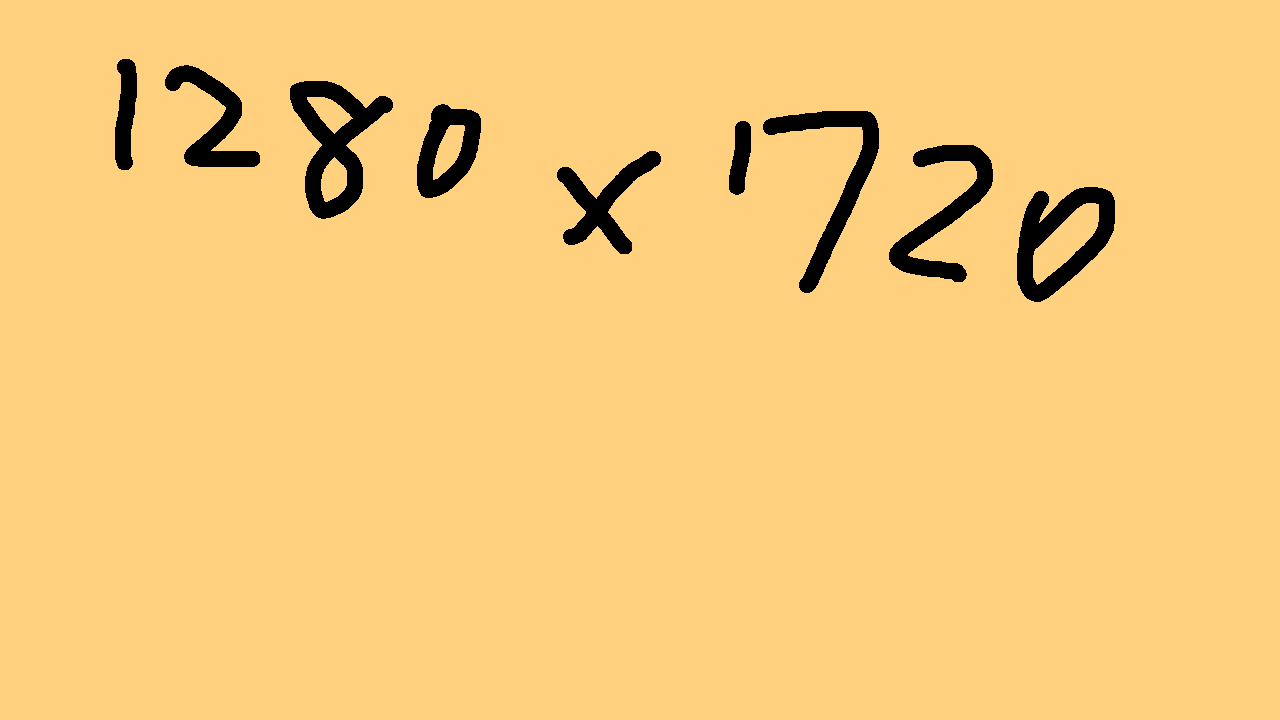 1280 x 720